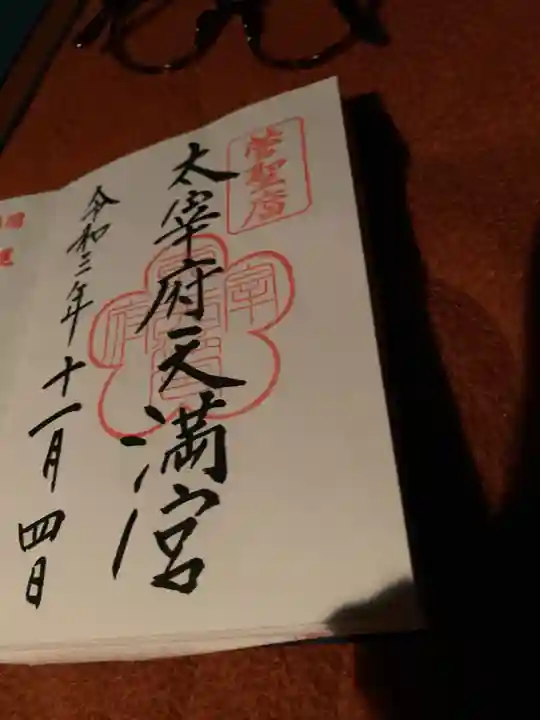 菅聖廟
太宰府天満宮
令和三年十一月四日